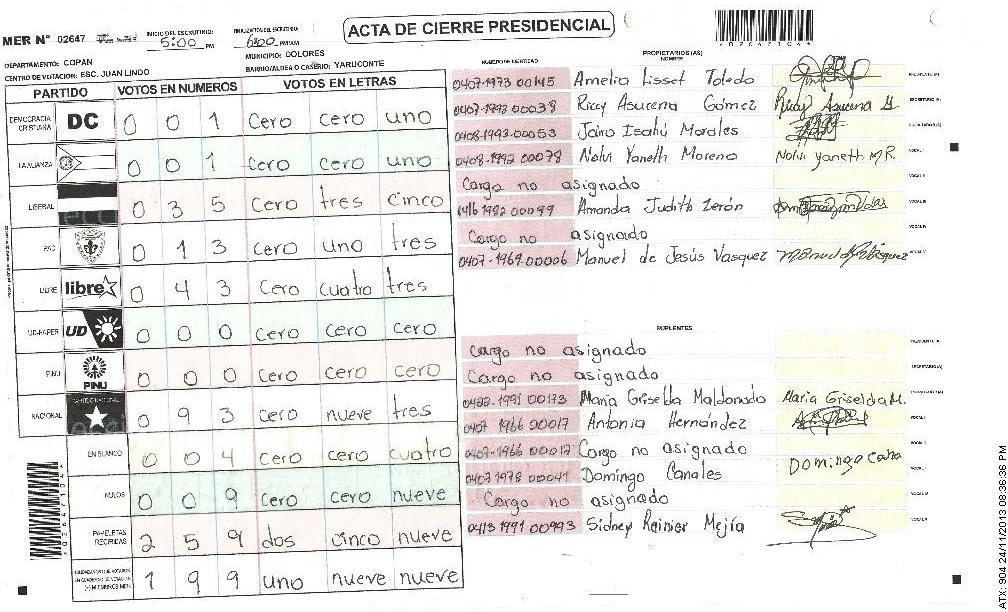 ACTA DE CIERRE PRESIDENCIAL
MER N° 02647
INICIO DEL ESCRUTINIO: 5:00 PM
FINALIZACION DEL ESCRUTINIO: 6:00 PM/AM
DEPARTAMENTO: COPAN
MUNICIPIO: DOLORES
CENTRO DE VOTACION: ESC. JUAN LINDO
BARRIO/ALDEA O CASERIO: YARUCONTE
PARTIDO VOTOS EN NUMEROS VOTOS EN LETRAS
DEMOCRACIA CRISTIANA DC 0 0 1 cero cero uno
LA ALIANZA 0 0 1 cero cero uno
LIBERAL 0 3 5 cero tres cinco
PAC 0 1 3 cero uno tres
LIBRE libre 0 4 3 cero cuatro tres
UD-FAPER UD 0 0 0 cero cero cero
PINU PINU 0 0 0 cero cero cero
NACIONAL PARTIDO NACIONAL 0 9 3 cero nueve tres
EN BLANCO 0 0 4 cero cero cuatro
NULOS 0 0 9 cero cero nueve
PAPELETAS RECIBIDAS 2 5 9 dos cinco nueve
CIUDADANOS QUE VOTARON EN CUADERNO DE VOTACION (+) MIEMBROS MER 1 9 9 uno nueve nueve
NUMERO DE IDENTIDAD
PROPIETARIOS (AS)
NOMBRE
0407-1973 00145 Amelia Lisset Toledo PRESIDENTE (A)
0407-1992 00038 Riccy Asucena Gómez Riccy Asucena G SECRETARIO (A)
0408-1993-00053 Jairo Isahú Morales ESCRUTADOR (A)
0408-1992 00078 Nolvi Yaneth Moreno Nolvi Yaneth M R. VOCAL I
Cargo no asignado VOCAL II
1416 1982 00099 Amanda Judith Zerón VOCAL III
Cargo no asignado VOCAL IV
0407-1969-00006 Manuel de Jesús Vasquez VOCAL V
SUPLENTES
Cargo no asignado PRESIDENTE (A)
Cargo no asignado SECRETARIO (A)
0422-1991 00173 María Griselda Maldonado Maria Griselda M. ESCRUTADOR (A)
0407 1966 00017 Antonia Hernández VOCAL I
0407-1966 00017 Cargo no asignado
0407 1978 00041 Domingo Canales Domingo Cana
Cargo no asignado VOCAL IV
0413 1991 00993 Sidney Rainier Mejía VOCAL V
ATX: 904 24/11/2013 08:36:36 PM